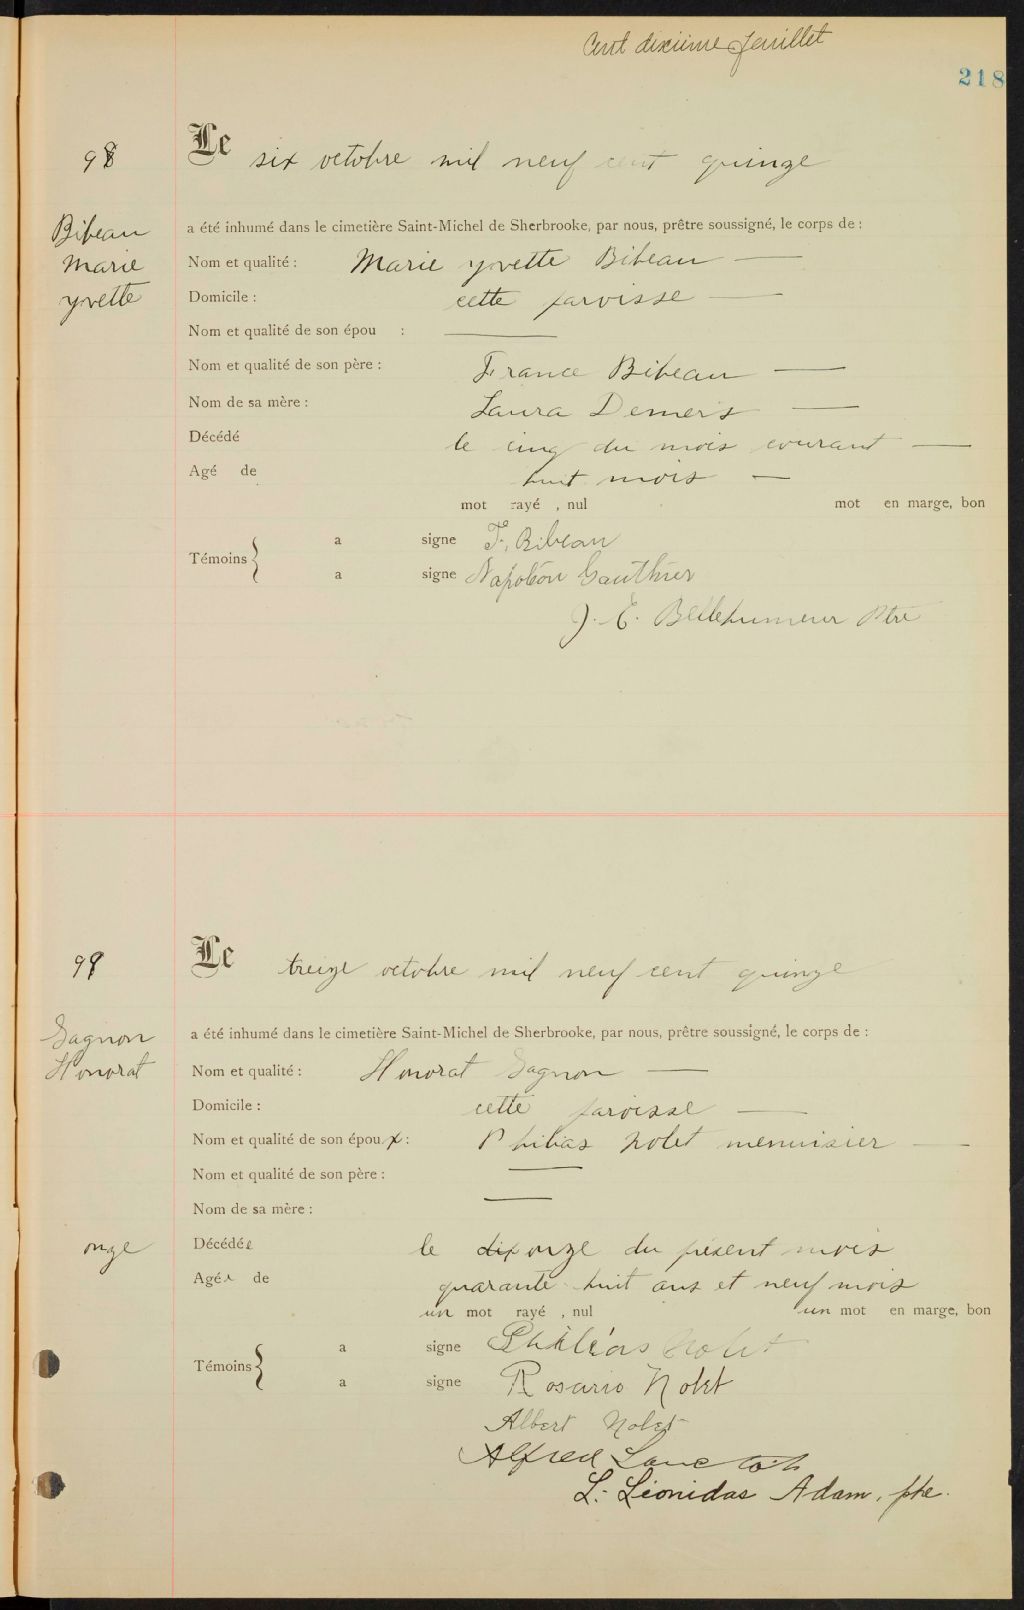 Cent dixième feuillet
218
98
Le six octobre mil neuf cent quinze
Bibeau
Marie
yvette
a été inhumé dans le cimetière Saint-Michel de Sherbrooke, par nous, prêtre soussigné, le corps de :
Nom et qualité : Marie yvette Bibeau —
Domicile : cette paroisse —
Nom et qualité de son épou : —
Nom et qualité de son père : France Bibeau —
Nom de sa mère : Laura Demers —
Décédé le cinq du mois courant —
Agé de huit mois —
mot rayé , nul mot en marge, bon
Témoins { a signe F. Bibeau
a signe Napoléon Gauthier
J. E. Bellehumeur Ptre
99
Le treize octobre mil neuf cent quinze
Gagnon
Honorat
a été inhumé dans le cimetière Saint-Michel de Sherbrooke, par nous, prêtre soussigné, le corps de :
Nom et qualité : Honorat Gagnon —
Domicile : cette paroisse —
Nom et qualité de son époux : Philias Nolet menuisier —
Nom et qualité de son père : —
Nom de sa mère : —
onze
Décédée le dix onze du présent mois
Agée de quarante-huit ans et neuf mois
un mot rayé , nul un mot en marge, bon
Témoins { a signe Philéas Nolet
a signe Rosario Nolet
Albert Nolet
Alfred Lanctôt
L. Léonidas Adam, ptre.